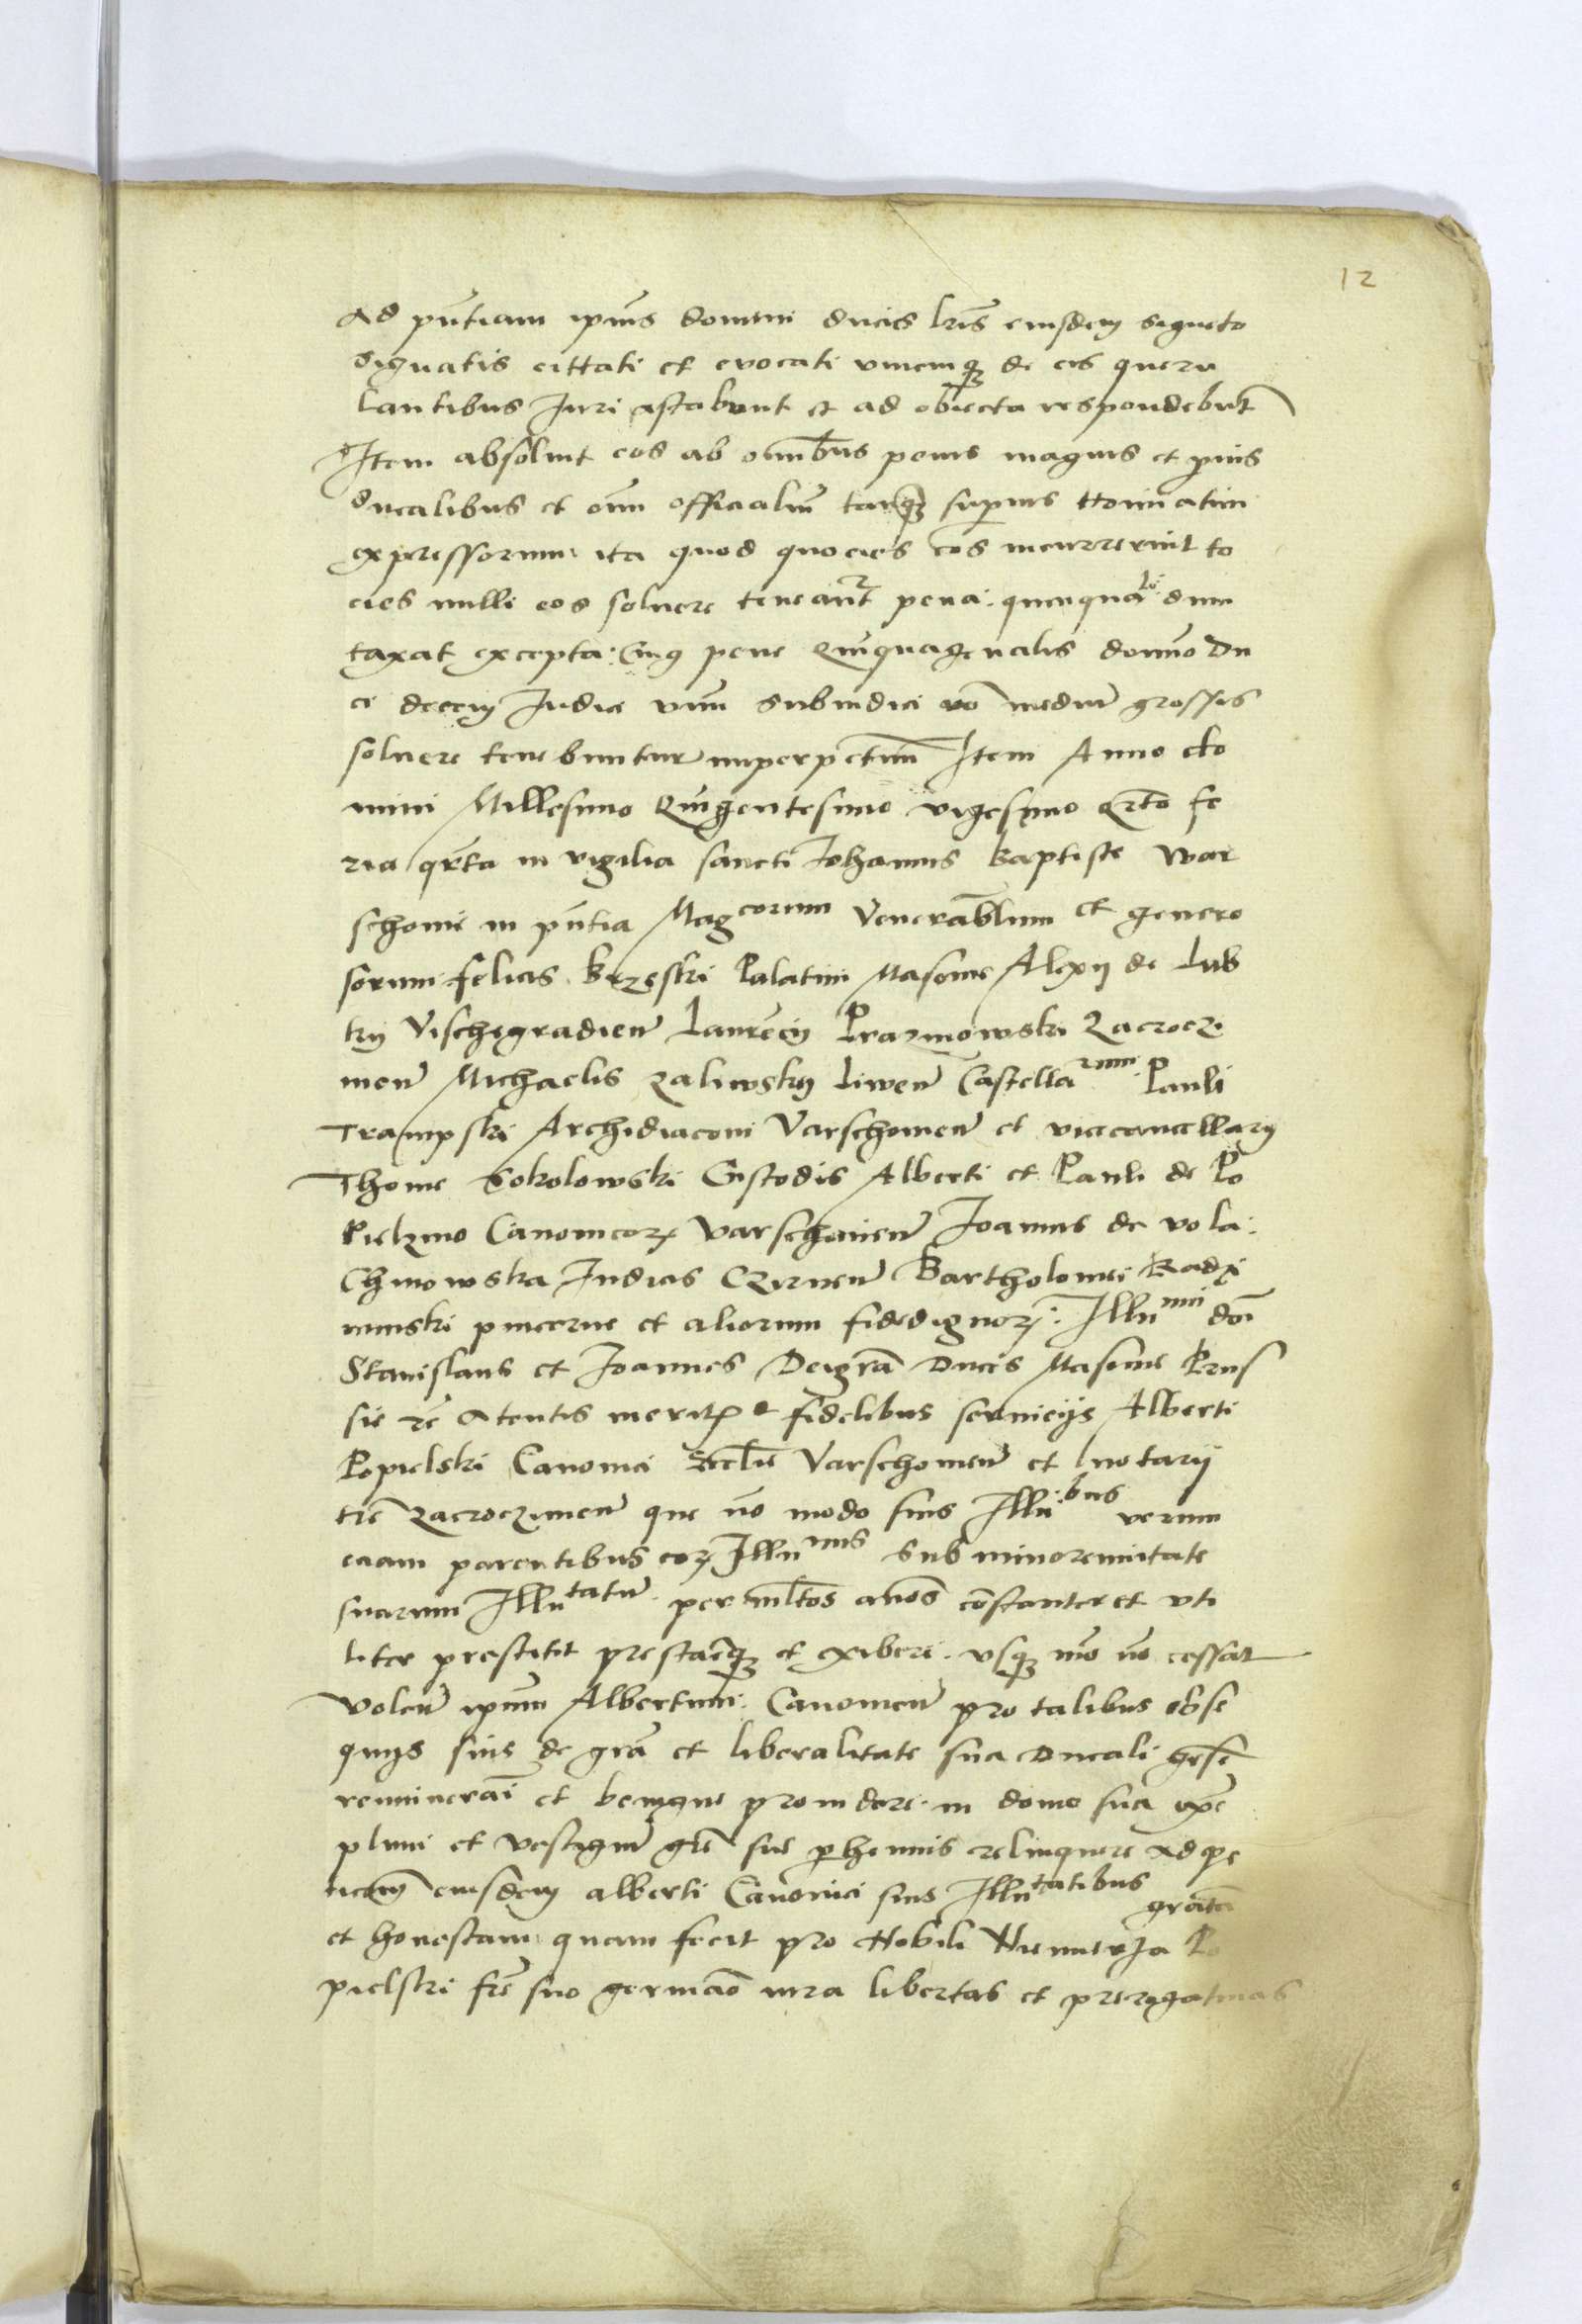 12
Ad pñtiam ipius domini ducis lris eiusdem signeto
signatis cittati et evocati vnicuiqꝫ de eis queru
lantibus Juri astabunt et ad obiecta respondebũt
Item absoluit eos ab omnibus penis magnis et paruis
ducalibus et omni officialiũ tanqꝫ superius Nominatim
expressorum ita quod quocies eos incurrerint to
cies nulli eos soluere teneantur pena: dum
taxat excepta: Cuius pene Quinquagenalis domino Du
ci decem Judici vnũ subiudici vo mediũ grossos
soluere tenebuntur inperpetuum Item Anno do
mini Millesimo Quingentesimo vigesimo Qrto fe
ria qrta in vigilia sancti Johannis Baptiste War
schouie in pñtia Magcorum Venerabilium et genero
sorum felicis Brzeski Palatini Masouie Alexii de Lub
kij Vischegradien̄ Laurẽcij Prazmowski Zacroczi
mien̄ Michaelis Zaliwskij Liwen̄ Castellanorum Pauli
Trampski Archidiaconi Varschouien̄ et vicecancellarij
Thome Sokolowski Custodis Alberti et Pauli de Po
Pielzino Canonicoꝝ Varschouien̄ Joannis de vola
Chinowska Judicis Czirnen̄ Bartholomei Radzi
minski pincerne et aliorum fidedignoꝝ: Illumi dñi
Stanislaus et Joannes Dei grã Ducis Masouie Prus
sie rc̃ Atentis meritis et fidelibus seruicijs Alberti
Popielski Canonici Ecclie Varschouien̄ et notarij
tre Zacroczimien̄ que nõ modo suis Illũbus verum
eciam parentibus eoꝝ Illumis sub minorennitate
suarum Illutatũ per mltos annos constanter et vti
liter prestitit prestatqꝫ et exibere vsqꝫ nũc nõ cessat
Volen̄ ipum Albertum Canonicũ pro talibus obse
quijs suis de grã et liberalitate sua Ducali
et benigne prouidere in domo sua exe
plum et vestigiũ grẽ sue perhennis relinquere Ad pe
ticom̃ eiusdem alberti Canonici suis Illutatibus gratã
et honestam quam fecit pro Nobili Niemierza Po
pielski frẽ suo germano iura libertas et prerogatiuas